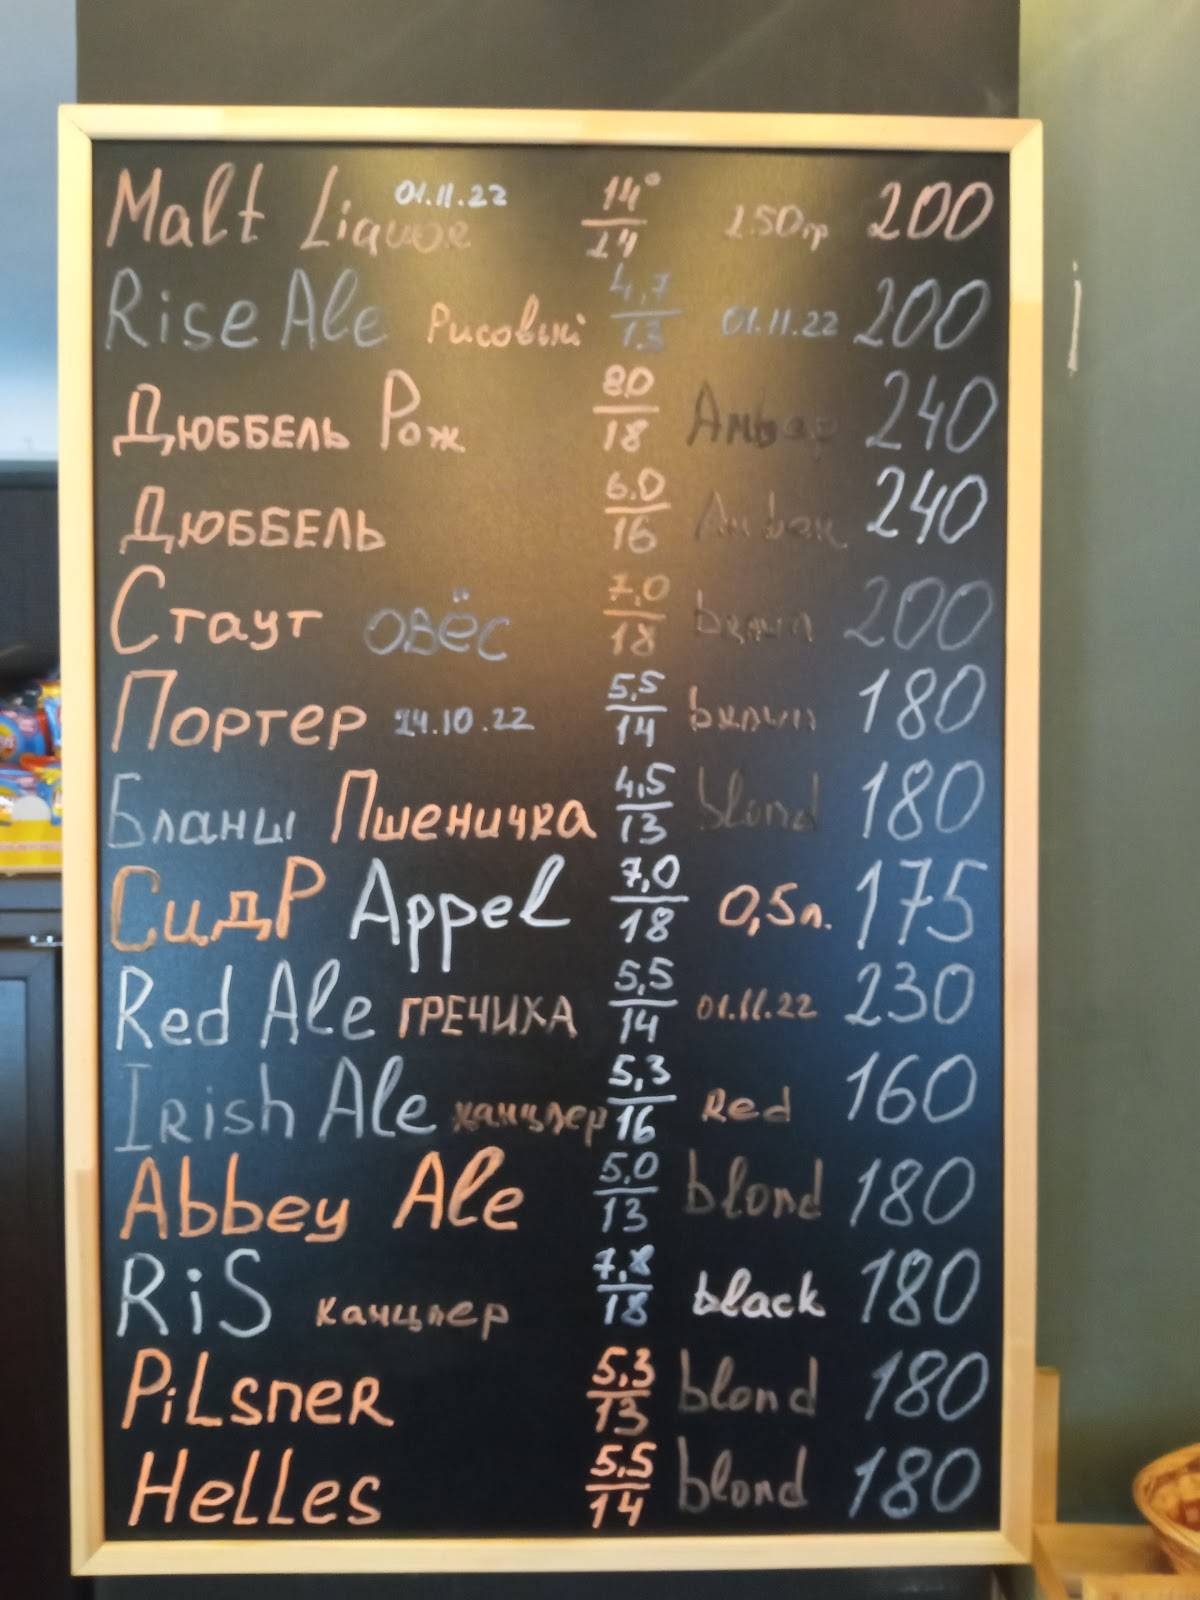 Malt Liquor 01.11.22 14°/24 250гр 200
Rise Ale Рисовый 4,7/13 01.11.22 200
Дюббель Рож 8.0/18 Амбар 240
Дюббель 6.0/16 240
Стаут овёс 7,0/18 200
Портер 24.10.22 5,5/14 180
Бланш Пшеничка 4,5/13 blond 180
Сидр Appel 7,0/18 0,5л. 175
Red Ale гречиха 5,5/14 01.11.22 230
Irish Ale канцлер 5,3/16 Red 160
Abbey Ale 5,0/13 blond 180
RiS канцлер 7,8/18 black 180
PiLsneR 5,3/13 blond 180
HeLLes 5,5/14 blond 180